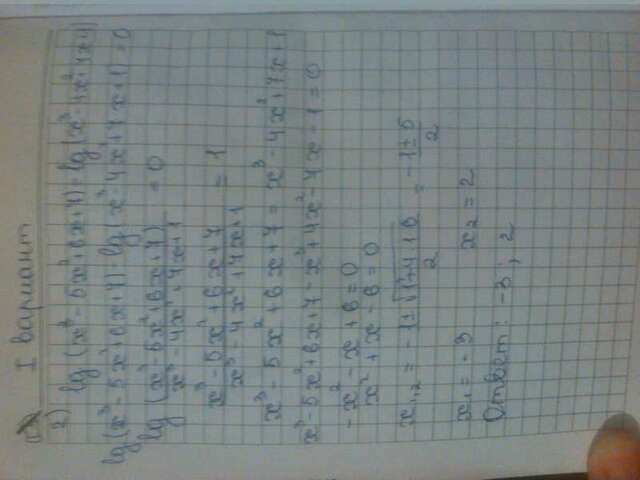 I вариант
2) lg(x³-5x²+6x+7)=lg(x³-4x²+7x+1)
lg(x³-5x²+6x+7)-lg(x³-4x²+7x+1)=0
lg (x³-5x²+6x+7)/(x³-4x²+7x+1) = 0
(x³-5x²+6x+7)/(x³-4x²+7x+1) = 1
x³-5x²+6x+7 = x³-4x²+7x+1
x³-5x²+6x+7-x³+4x²-7x-1=0
-x²-x+6=0
x²+x-6=0
x₁,₂ = (-1±√(1+4·6))/2 = (-1±5)/2
x₁=-3 x₂=2
Ответ: -3; 2